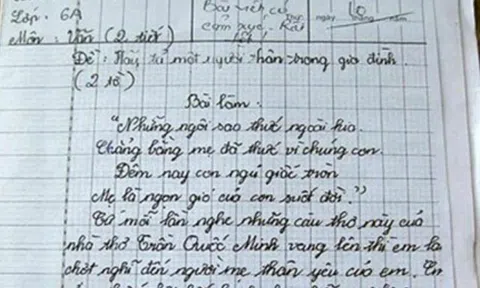 Lớp: 6A
Bài viết có
cảm xúc. Rất
tốt
ngày tháng năm
10
Môn: Văn (2 tiết)
Đề: Hãy tả một người thân trong gia đình.
(2 tờ)
Bài làm:
"Những ngôi sao thức ngoài kia
Chẳng bằng mẹ đã thức vì chúng con.
Đêm nay con ngủ giấc tròn
Mẹ là ngọn gió của con suốt đời."
Cứ mỗi lần nghe những câu thơ này của
nhà thơ Trần Quốc Minh vang lên thì em lại
chợt nghĩ đến người mẹ thân yêu của em. Em